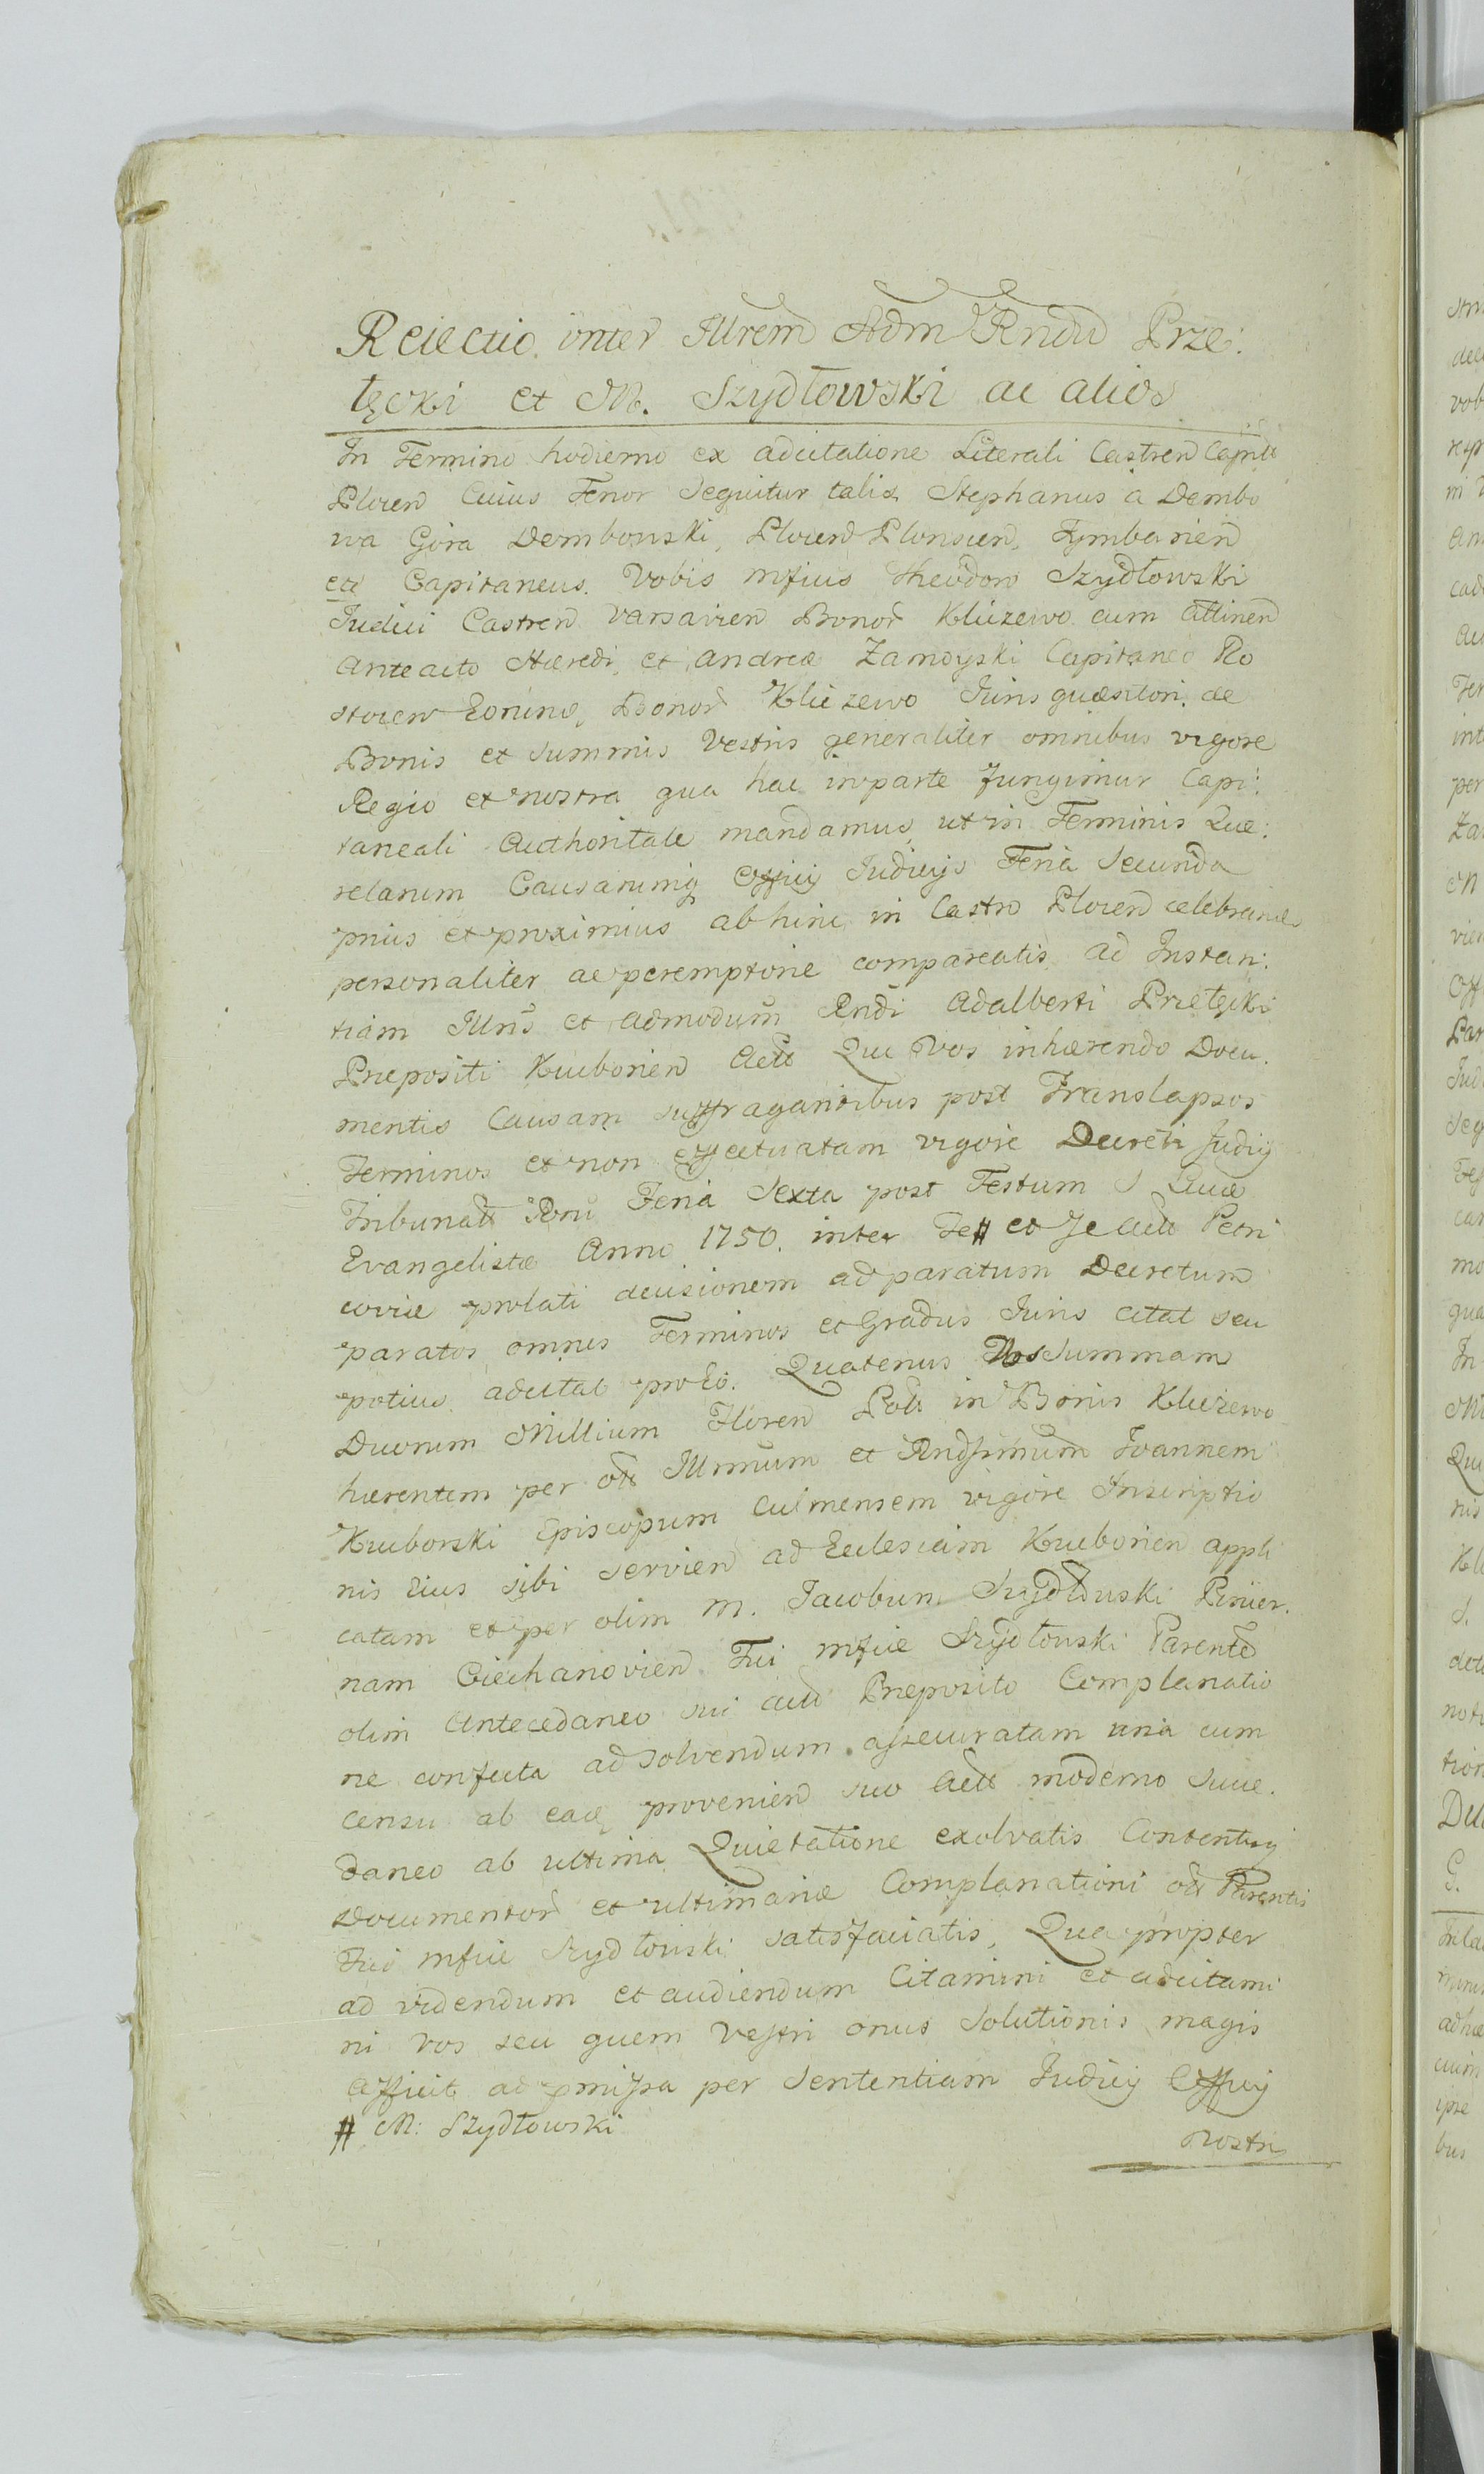 Reiectio inter Illrem Adm Rndu Prze:
tęcki et M. Szydłowski ac alios
In Termino hodierno ex adcitatione Literali Castren Capnli
Plocen Cuius Tenor Sequitur talis Stephanus à Dembo
wa Góra Dembowski, Plocen Plonscen, Tymbarien
etc Capitaneus. Vobis mfius Theodoro Szydłowski
Iudici Castren Varsavien Bonor Kliczewo cum attinen
Anteacto Hæredi, et Andreæ Zamoyski Capitaneo Ro
stocien Eorund, Bonor Kliczewo Iuris quæsitori, de
Bonis et Summis Vestris generaliter omnibus vigore
Regio et nostra qua hac in parte fungimur Capi:
taneali Authoritate mandamus, ut in Terminis Que:
relarum Causarumq Officij Iudicijs Feria Secunda
prius et proximius abhinc in Castro Plocen celebran
personaliter ac peremptorie compareatis ad Instan:
tiam Illris et admodum Rndi Adalberti Przetęcki
Præpositi Kucborien Actt Qui Vos inhærendo Docu.
mentis Causam suffragantibus post Translapsos
Terminos et non effectuatam vigore Decreti Judij
Tribunalt Rni Feria Sexta post Festum S Lucæ
Evangelistæ Anno 1750. inter Te # et Se actt Petri
coviæ prolati decisionem ad paratum Decretum
paratos omnes Terminos et Gradus Iuris citat seu
potius adcitat pro Eo. Quatenus Vos Summam
Duorum Millium Floren Polt in Bonis Kliczewo
hærentem per olt Illrmum et Rndssimum Joannem
Kucborski Episcopum Culmensem vigore Inscriptio
nis Eius sibi servien ad Ecclesiam Kucborien appli
catam et per olim M. Jacobum Szydłowski Pincer.
nam Ciechanovien Tui mfice Szydłowski Parente
olim Antecedaneo sui actt Præposito Complanatio
ne confecta ad solvendum assecuratam una cum
censu ab ead provenien suo Actt moderno Succe.
daneo ab ultima Quietatione exolvatis Contentisq
Documentor et ultimariæ Complanationi olt Parentis
Tui mfice Szydłowski satisfaciatis, Qua propter
ad videndum et audiendum Citamini et adcitami
ni vos seu quem Vestri onus Solutionis magis
afficit ad pmissa per Sententiam Iudicij Officij
# M: Szydłowski
nostri